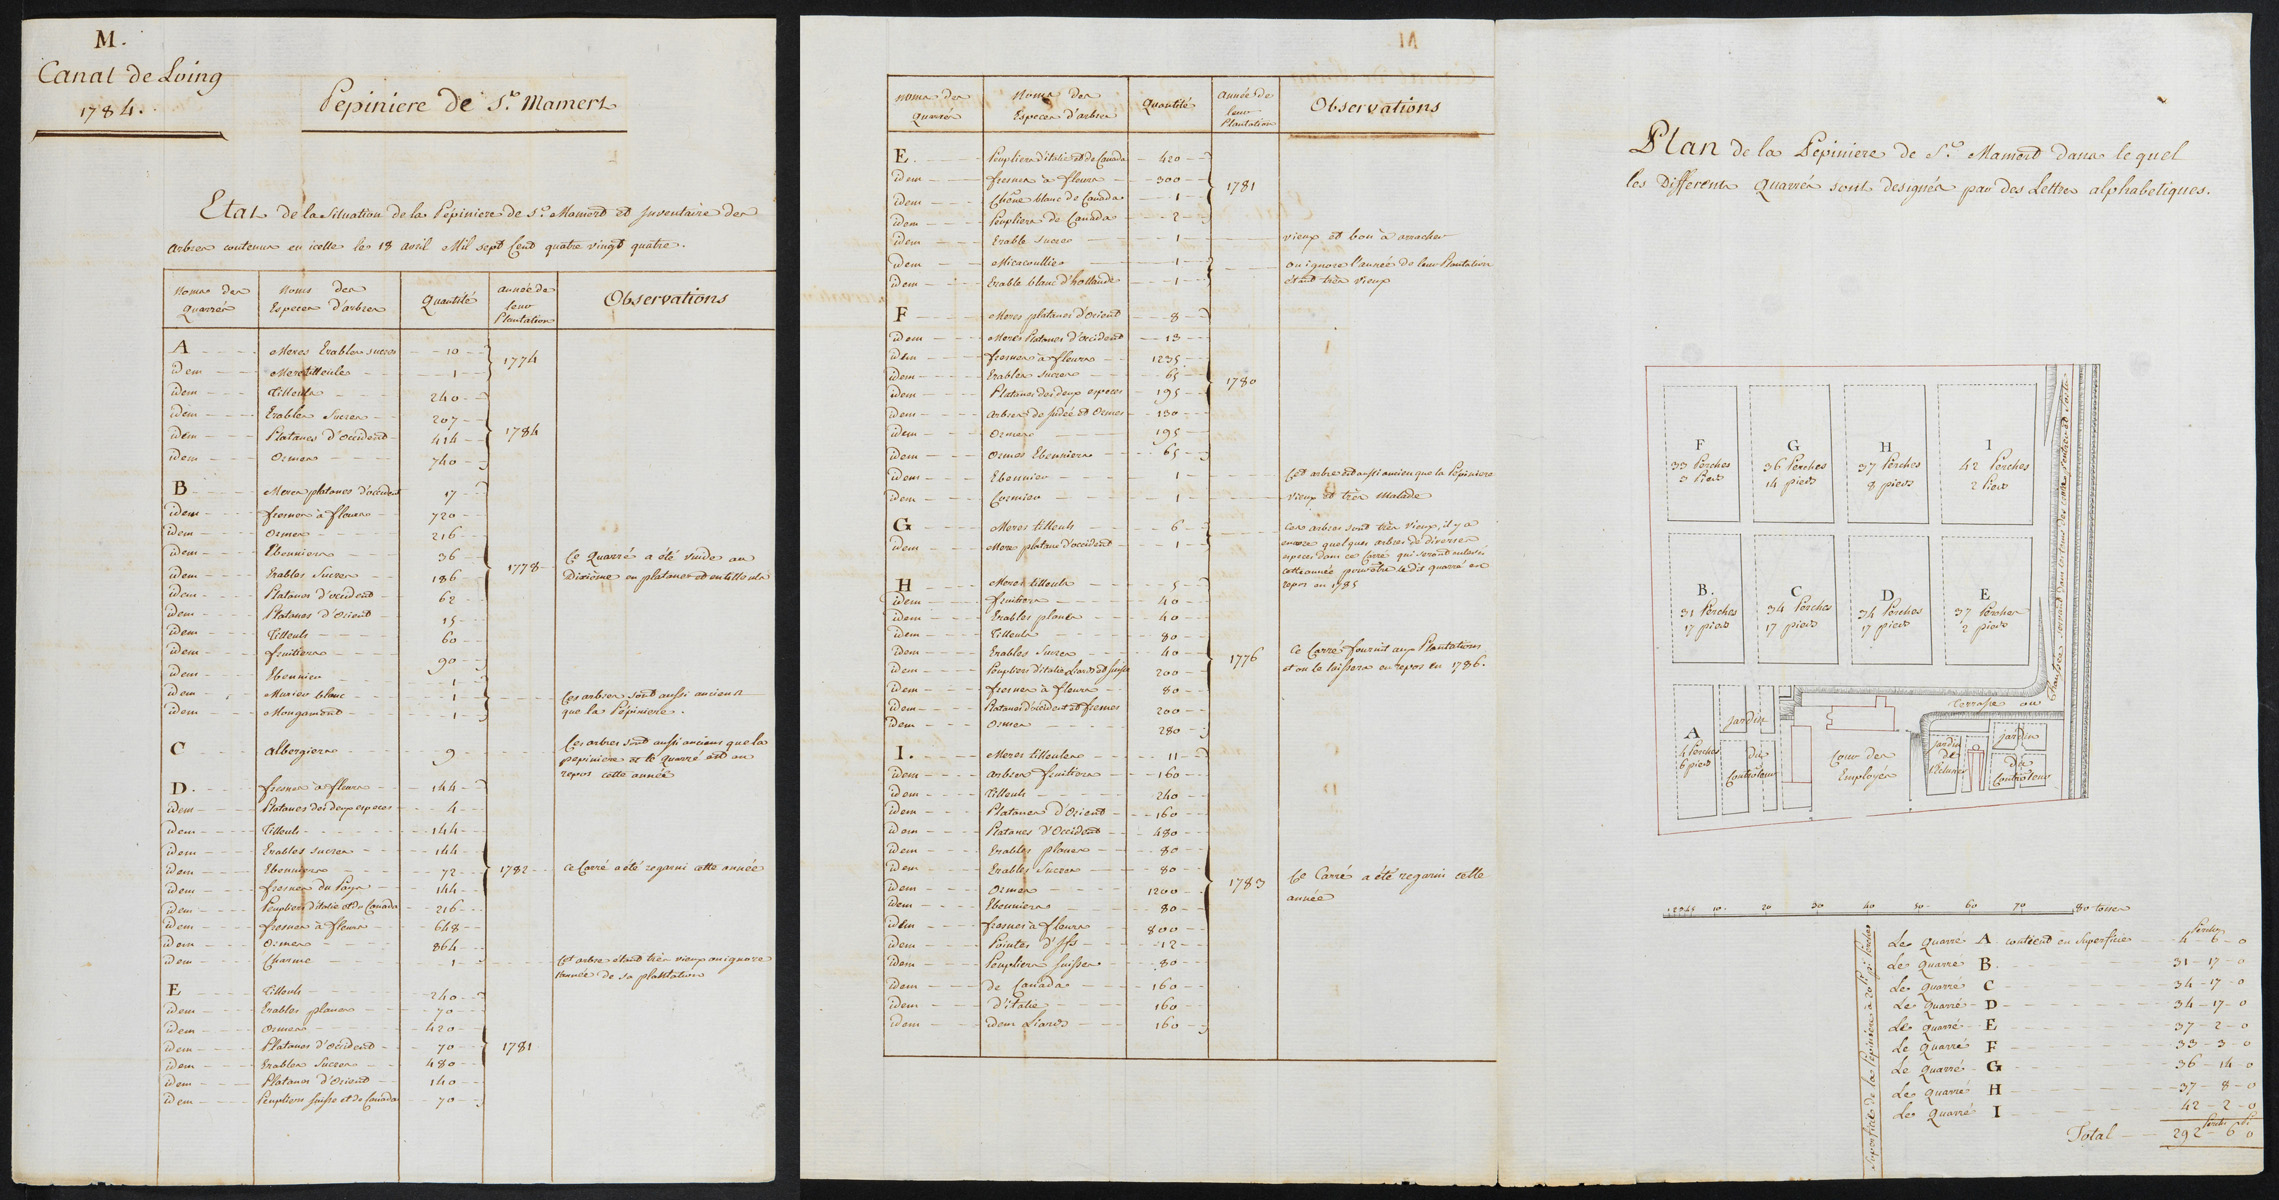 M.
Canal de Loing
1784.
Pepiniere de St. Mamert
Etat de la Situation de la Pepiniere de St. Mamert et Inventaire des
arbres contenus en icelle le 18 avril Mil sept Cent quatre vingt quatre.
Noms des Quarrés | Noms des Especes d'arbres | Quantité | année de leur Plantation | Observations
A | Meres Erables sucres | 10 | 1774
idem | Mere tilleule | 1
idem | Tilleuls | 240 | 1784
idem | Erables Sucres | 207
idem | Platanes d'Occident | 414
idem | Ormes | 740
B | Meres platanes d'occident | 17 | 1778 | Ce Quarré a été vuidé au Dixième en platanes et en tilleuls
idem | fresnes à fleurs | 720
idem | Ormes | 216
idem | Ebenniers | 36
idem | Erables Sucres | 186
idem | Platanes d'occident | 62
idem | Platanes d'Orient | 15
idem | Tilleuls | 60
idem | fruitiers | 90
idem | Ebennier | 1 | Ces arbres sont aussi anciens que la Pépiniere.
idem | Murier blanc | 1
idem | Mongament | 1
C | albergiers | 9 | Ces arbres sont aussi anciens que la pepiniere et le quarré est en repos cette année
D. | fresnes à fleurs | 144 | 1782 | ce Carré a été regarni cette année
idem | Platanes des deux especes | 4
idem | Tilleuls | 144
idem | Erables sucres | 144
idem | Ebenniers | 72
idem | fresnes du Pays | 144
idem | Peupliers d'italie et de Canada | 216
idem | fresnes à fleurs | 648
idem | Ormes | 864
idem | Charme | 1 | Cet arbre étant très vieux on ignore l'année de sa plantation
E | Tilleuls | 240 | 1781
idem | Erables planes | 70
idem | Ormes | 420
idem | Platanes d'Occident | 70
idem | Erables Sucres | 480
idem | Platanes d'Orient | 140
idem | Peupliers suisse et de Canada | 70
Noms des Quarrés | Noms des Especes d'arbres | Quantité | année de leur Plantation | Observations
E. | Peupliers d'italie et de Canada | 420 | 1781
idem | fresnes à fleurs | 300
idem | Chêne blanc de Canada | 1
idem | Peupliers de Canada | 2
idem | Erable sucre | 1 | vieux et bon à arracher
idem | Micacoullier | 1 | on ignore l'année de leur Plantation étant très vieux
idem | Erable blanc d'hollande | 1
F | Meres platanes d'Orient | 8 | 1780
idem | Meres Platanes d'Occident | 13
idem | fresnes à fleurs | 1235
idem | Erables sucres | 65
idem | Platanes des deux especes | 195
idem | arbres de judée et Ormes | 130
idem | Ormes | 195
idem | Ormes Ebenniers | 65
idem | Ebennier | 1 | Cet arbre est aussi ancien que la Pépiniere
idem | Cormier | 1 | vieux et très malade
G | Meres tilleuls | 6 | ces arbres sont très vieux, il y a encore quelques arbres de diverses especes dans ce Carré qui seront enlevés cette année pour être le dit quarré en repos en 1785
idem | Mere platane d'occident | 1
H | Meres tilleuls | 5 | 1776 | Ce Carré fournit aux Plantations et on le laissera en repos en 1786.
idem | fruitiers | 40
idem | Erables planes | 40
idem | Tilleuls | 80
idem | Erables Sucres | 40
idem | Peupliers d'italie Liards et suisse | 200
idem | fresnes à fleurs | 80
idem | Platanes d'occident et fresnes | 200
idem | Ormes | 280
I. | Meres tilleules | 11 | 1783 | Ce Carré a été regarni cette année
idem | arbres fruitiers | 160
idem | Tilleuls | 240
idem | Platanes d'Orient | 160
idem | Platanes d'Occident | 480
idem | Erables planes | 80
idem | Erables Sucres | 80
idem | Ormes | 1200
idem | Ebenniers | 80
idem | fresnes à fleurs | 800
idem | Pointes d'Ifs | 12
idem | Peupliers suisses | 80
idem | de Canada | 160
idem | d'italie | 160
idem | idem Liards | 160
Plan de la Pépiniere de St. Mamert dans le quel
les Differents Quarrés sont designés par des Lettres alphabetiques.
F
33 Perches
3 Pieds
G
36 Perches
14 pieds
H
37 Perches
8 pieds
I
42 Perches
2 Pieds
B.
31 Perches
17 pieds
C
34 Perches
17 pieds
D
34 Perches
17 pieds
E
37 Perches
2 pieds
A
4 Perches
6 pieds
Jardin
du
Contrôleur
Cour des
Employés
Terrasse ou
jardin
de
l'Eclusier
Jardin
du
Contrôleur
1 2 3 4 5 10. 20 30 40 50 60 70 80 toises
Superficie de la Pépiniere à 20 pi. p. Perches
Perches
Le Quarré A contient en Superficie 4 - 6 - 0
Le Quarré B. 31 - 17 - 0
Le Quarré C 34 - 17 - 0
Le Quarré D 34 - 17 - 0
Le Quarré E 37 - 2 - 0
Le Quarré F 33 - 3 - 0
Le Quarré G 36 - 14 - 0
Le Quarré H 37 - 8 - 0
Le Quarré I 42 - 2 - 0
Total 292 - 6 - 0